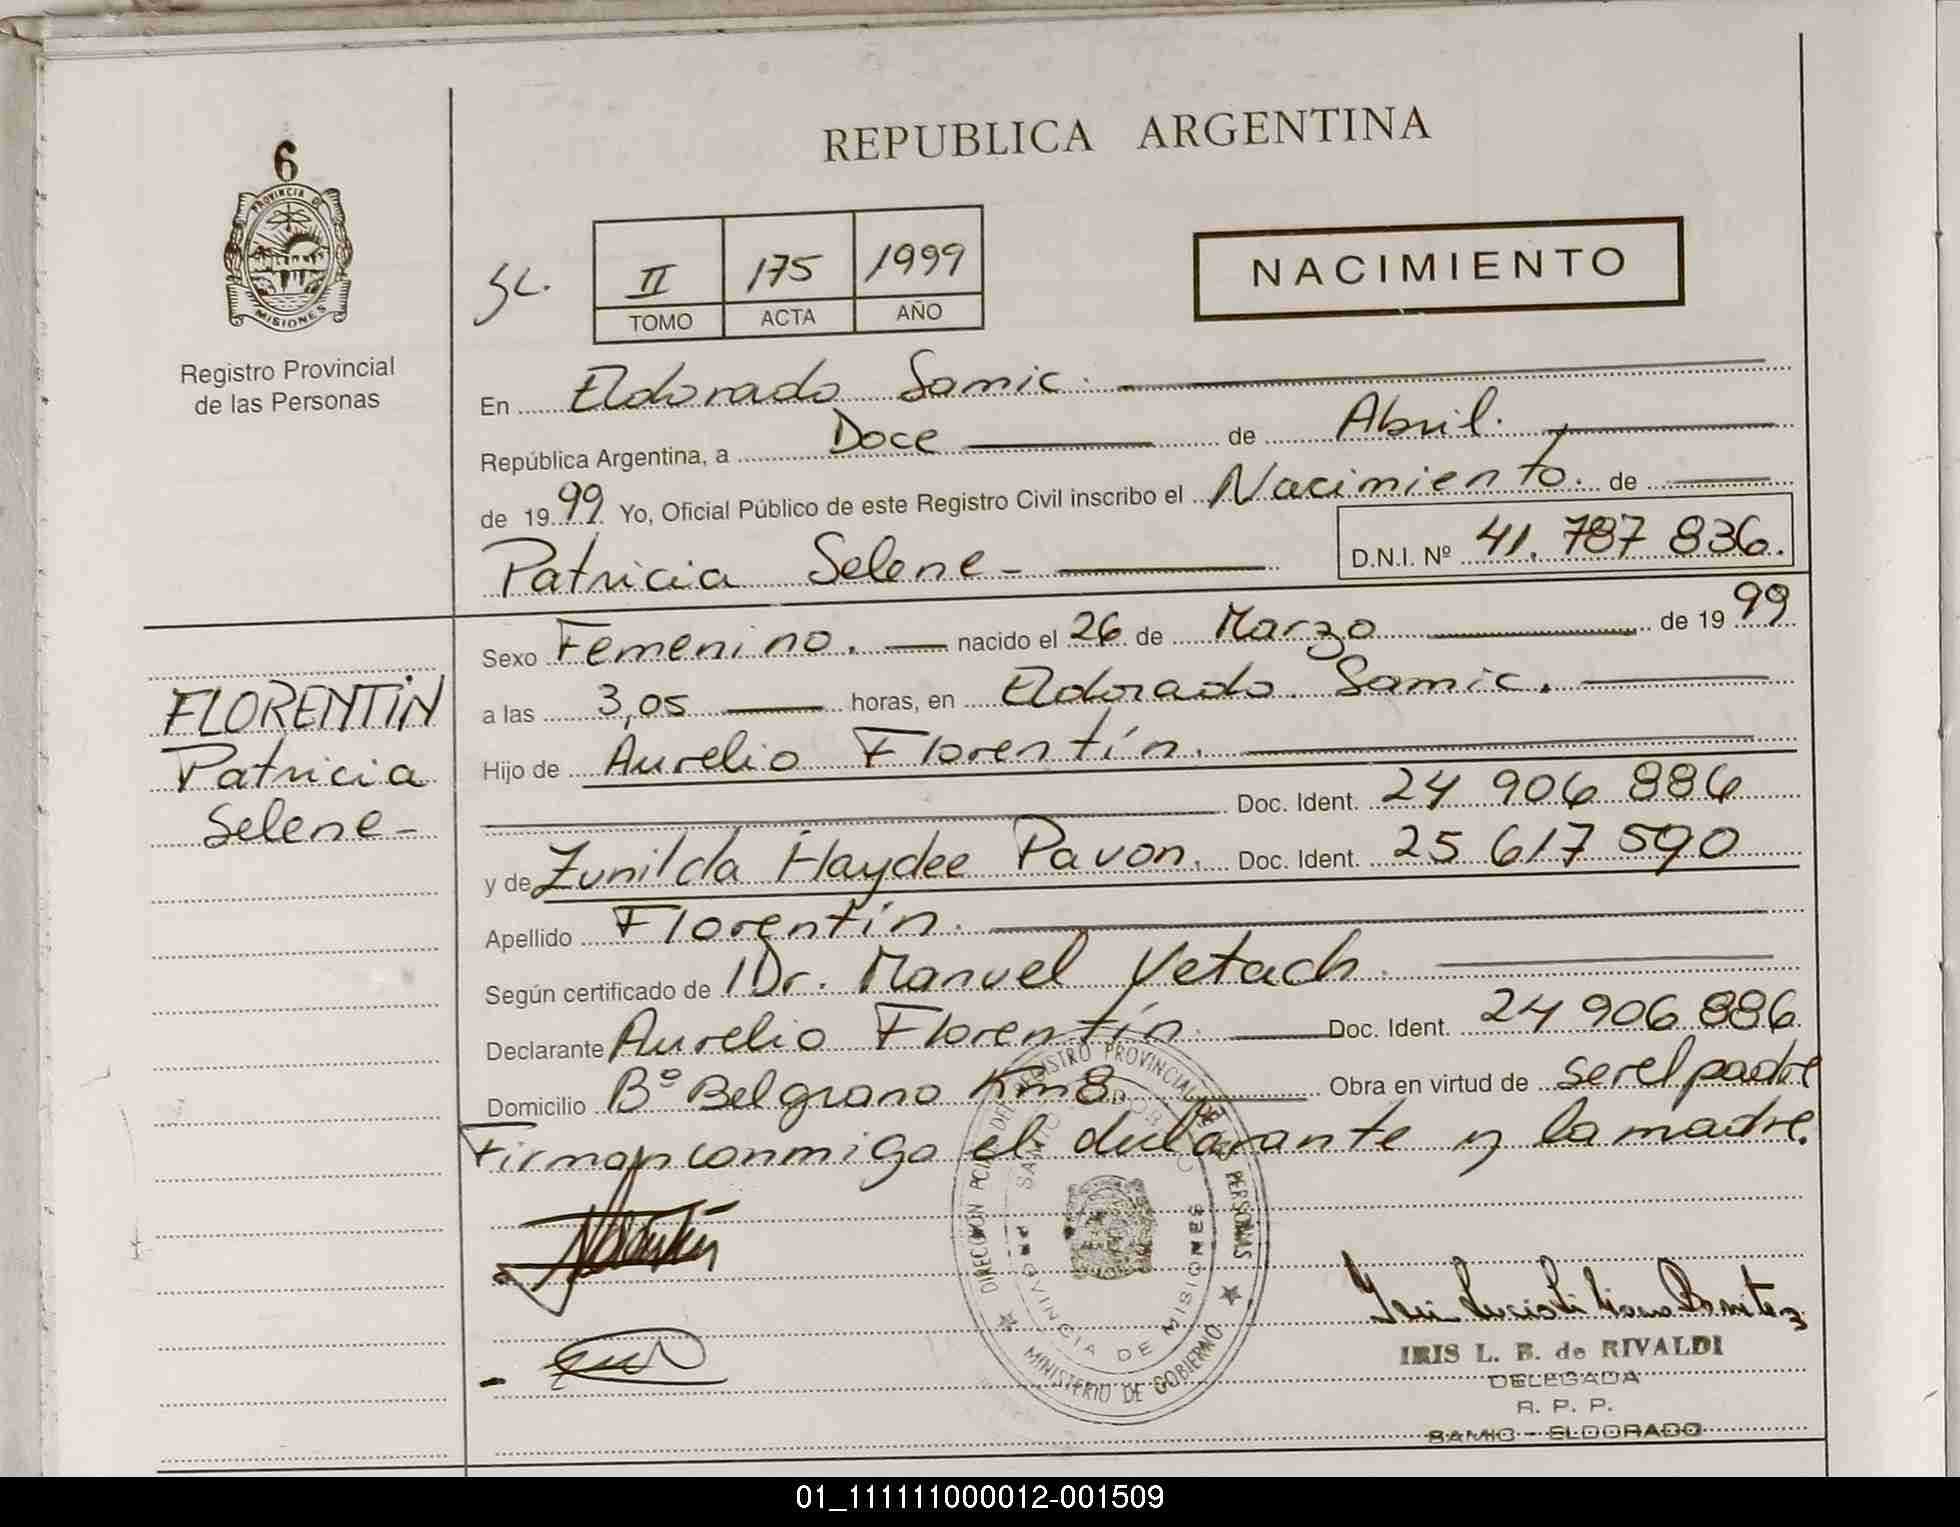 6
PROVINCIA DE
MISIONES
Registro Provincial
de las Personas
REPUBLICA ARGENTINA
II 175 1999
TOMO ACTA AÑO
NACIMIENTO
En Eldorado Samic.
República Argentina, a Doce de Abril.
de 1999 Yo, Oficial Público de este Registro Civil inscribo el Nacimiento. de
Patricia Selene - D.N.I. Nº 41.787 836.
FLORENTIN
Patricia
Selene-
Sexo Femenino. nacido el 26 de Marzo de 1999
a las 3,05 horas, en Eldorado Samic.
Hijo de Aurelio Florentín.
Doc. Ident. 24 906 886
y de Zunilda Haydee Pavon. Doc. Ident. 25 617 590
Apellido Florentín.
Según certificado de Dr. Manuel Vetach.
Declarante Aurelio Florentín. Doc. Ident. 24 906 886
Domicilio Bº Belgrano Km 8. Obra en virtud de ser el padre
Firman conmigo el declarante y la madre.
DIRECCION PCIAL DEL REGISTRO PROVINCIAL DE LAS PERSONAS
PROVINCIA DE MISIONES
MINISTERIO DE GOBIERNO
IRIS L. B. de RIVALDI
DELEGADA
R. P. P.
SAMIC - ELDORADO
01_111111000012-001509